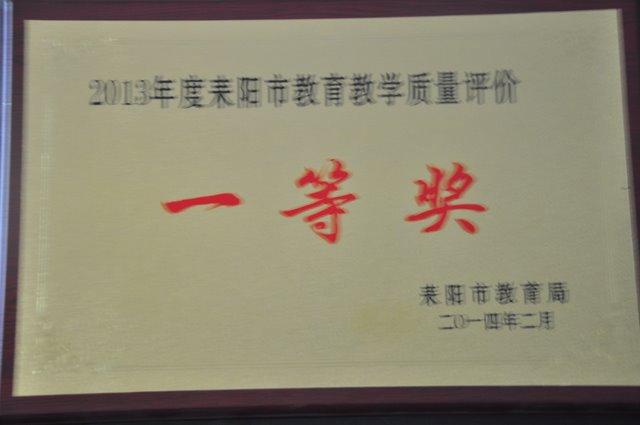 2013年度耒阳市教育教学质量评价
一等奖
耒阳市教育局
二〇一四年二月